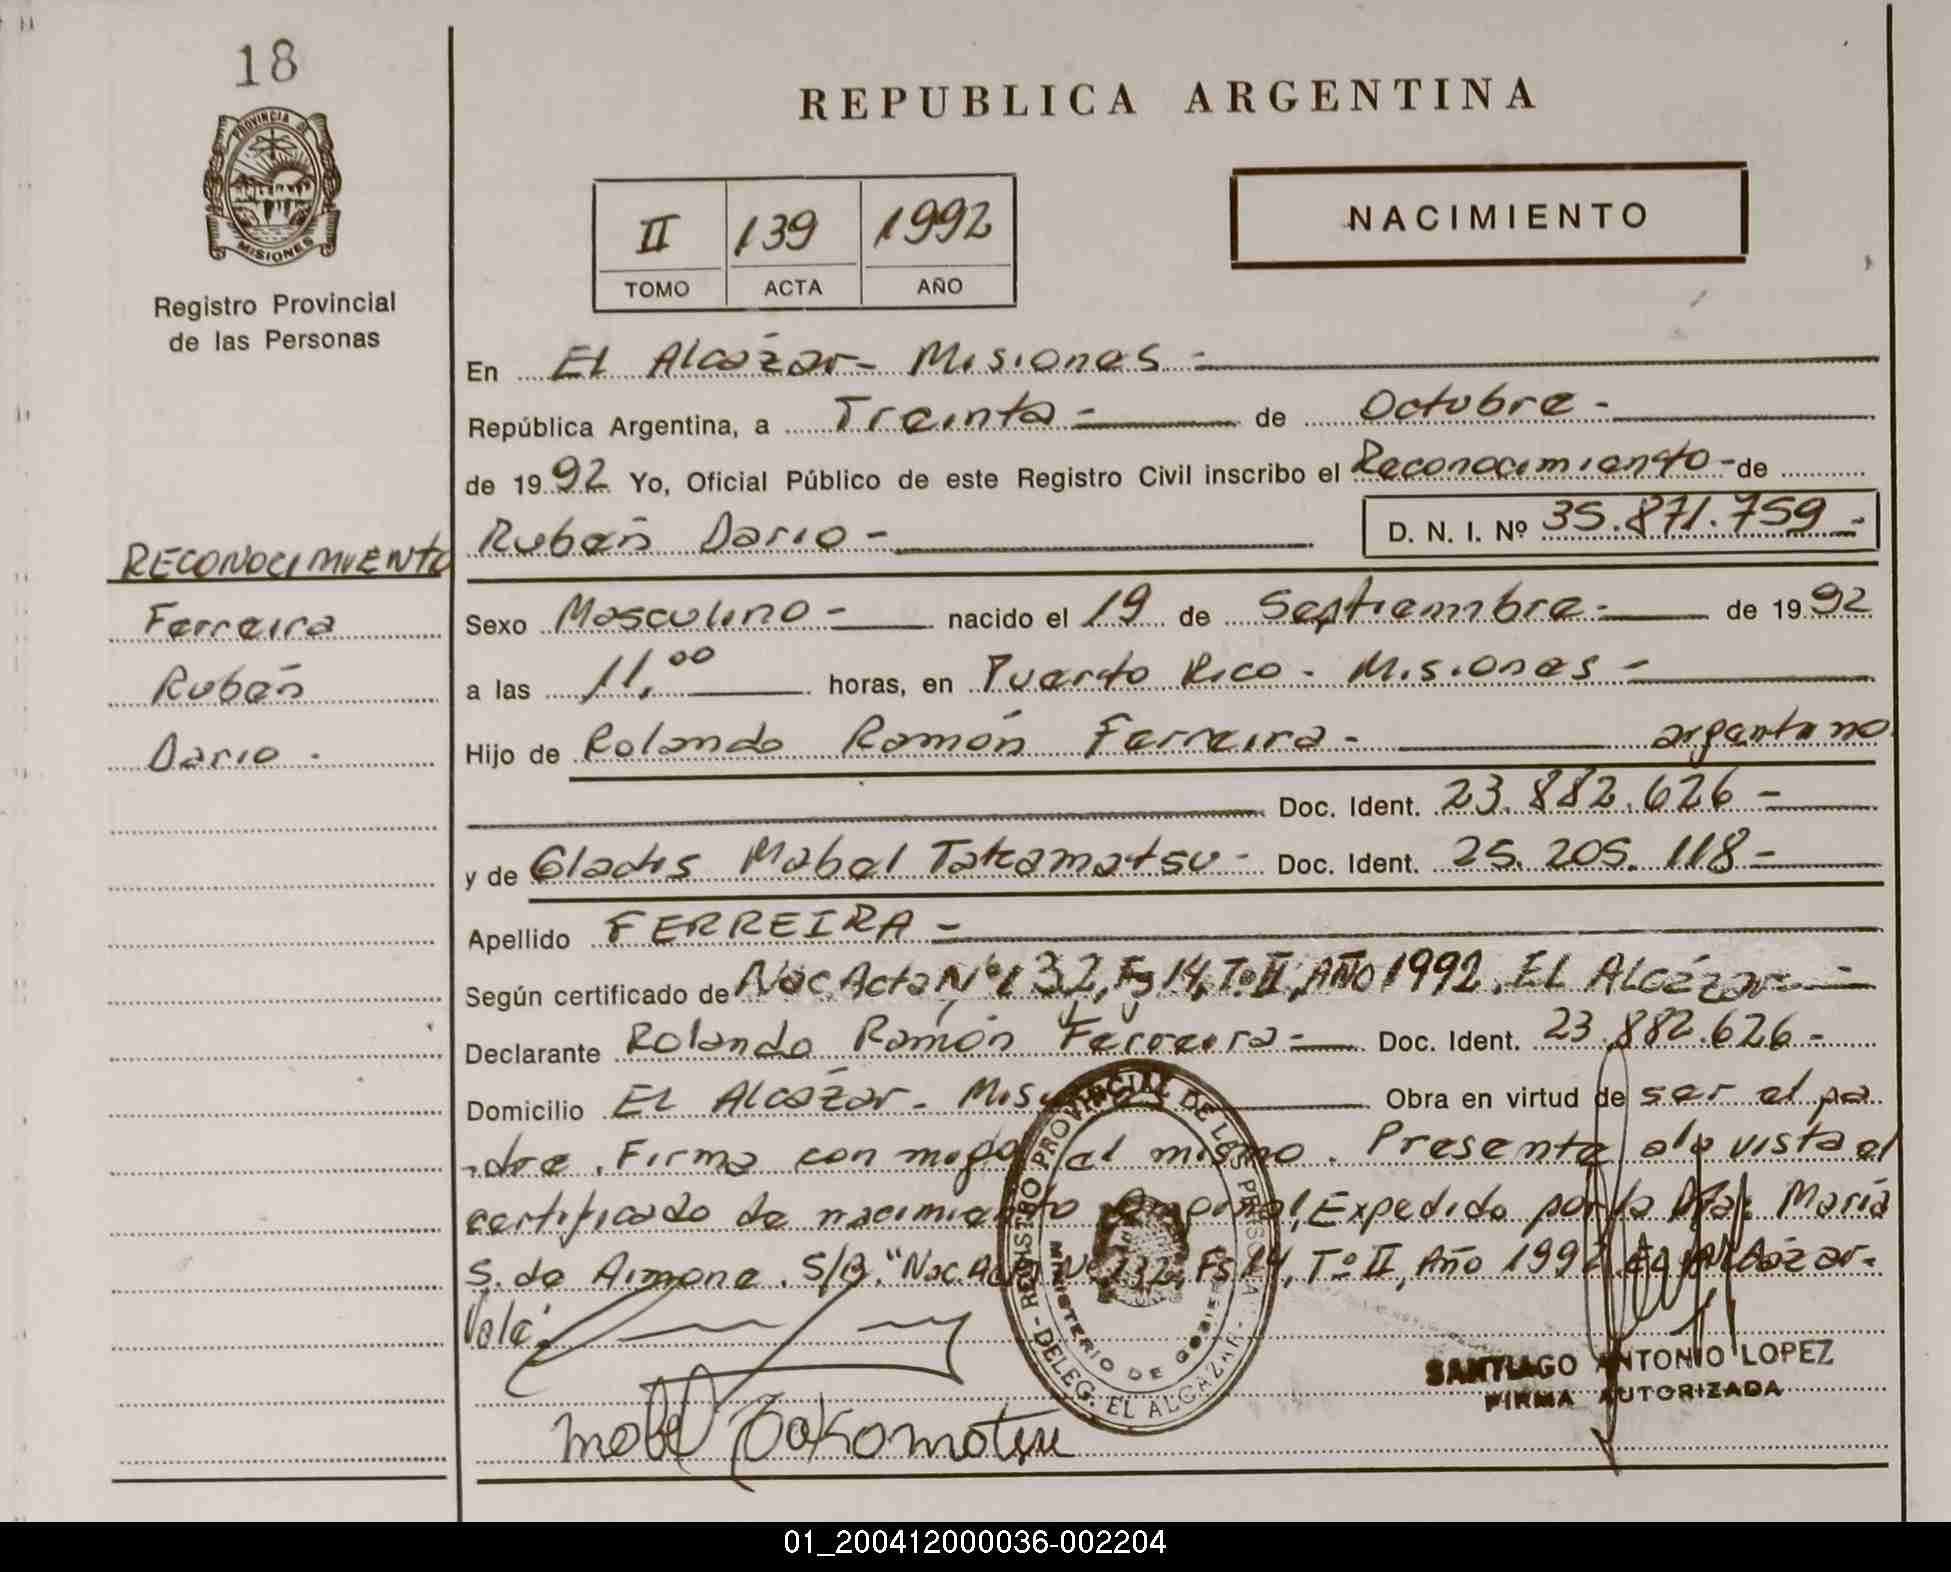 18
PROVINCIA DE
MISIONES
Registro Provincial
de las Personas
REPUBLICA ARGENTINA
II 139 1992
TOMO ACTA AÑO
NACIMIENTO
En El Alcázar - Misiones -
República Argentina, a Treinta - de Octubre -
de 1992 Yo, Oficial Público de este Registro Civil inscribo el Reconocimiento - de
Rubén Dario - D. N. I. Nº 35.871.759 -
RECONOCIMIENTO
Ferreira
Rubén
Dario .
Sexo Masculino - nacido el 19 de Septiembre - de 1992
a las 11,00 horas, en Puerto Rico - Misiones -
Hijo de Rolando Ramón Ferreira - argentino
Doc. Ident. 23.882.626 -
y de Gladis Mabel Takamatsu - Doc. Ident. 25.205.118 -
Apellido FERREIRA -
Según certificado de Nac. Acta Nº 132, Fs 14, Tº II, AÑO 1992, El Alcázar -
Declarante Rolando Ramón Ferreira - Doc. Ident. 23.882.626 -
Domicilio El Alcázar - Obra en virtud de ser el pa
dre. Firma con migo el mismo. Presente a la vista el
certificado de nacimiento original, Expedido por la María
S. de Aimone. S/B. "Nac. Acta Nº 132, Fs 14, Tº II, Año 1992, El Alcázar -
Vale.
Mabel Takamatsu
REGISTRO PROVINCIAL DE LAS PERSONAS
MINISTERIO DE GOBIERNO
- DELEG. EL ALCAZAR -
SANTIAGO ANTONIO LOPEZ
FIRMA AUTORIZADA
01_200412000036-002204